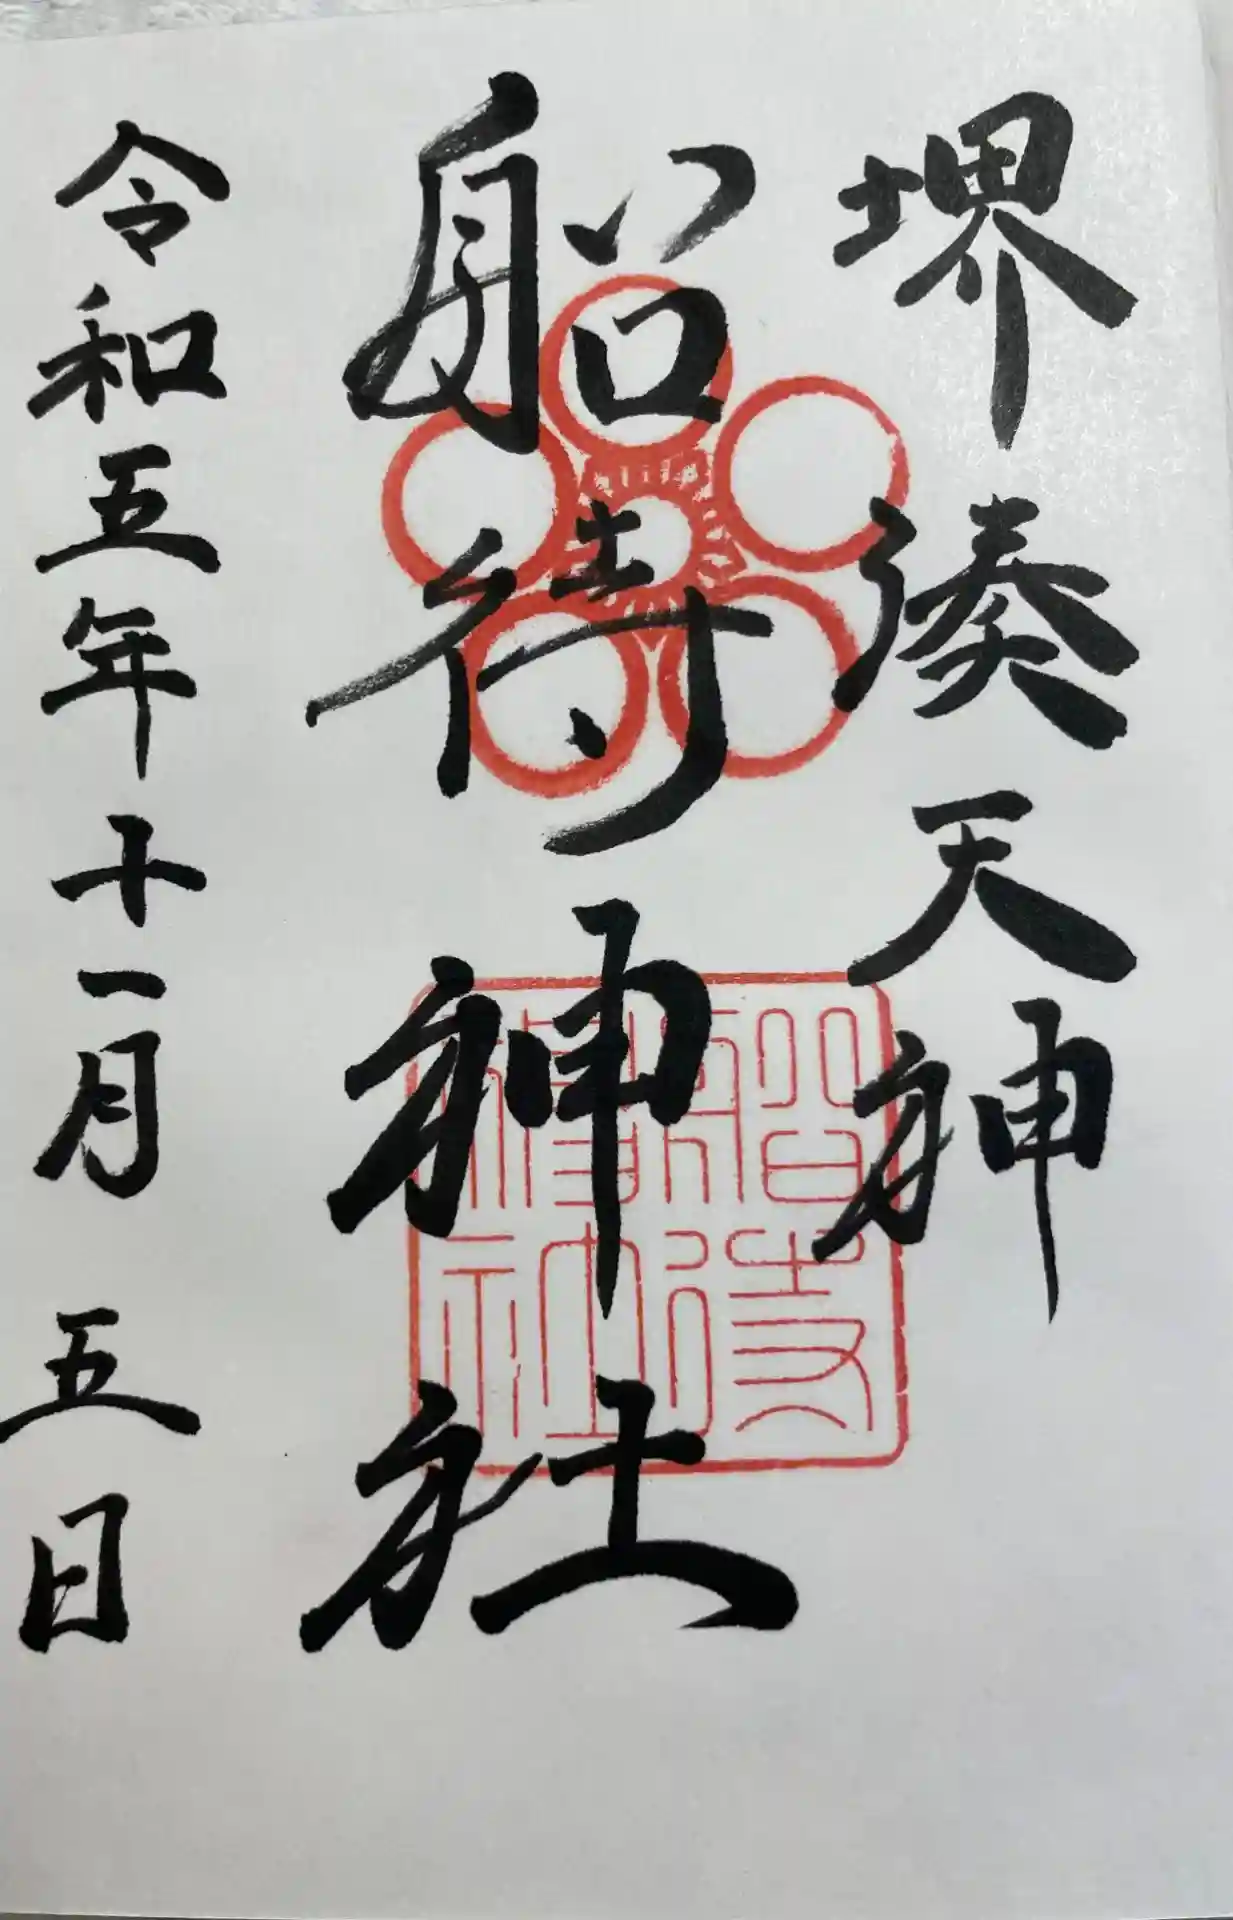 堺湊天神
船待神社
令和五年十一月五日